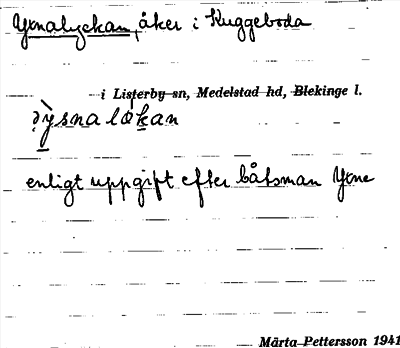 Yxnalyckan, åker i Kuggeboda
i Listerby sn, Medelstad hd, Blekinge l.
ỳsnalökan
enligt uppgift efter båtsman Yxne
Märta Pettersson 1941